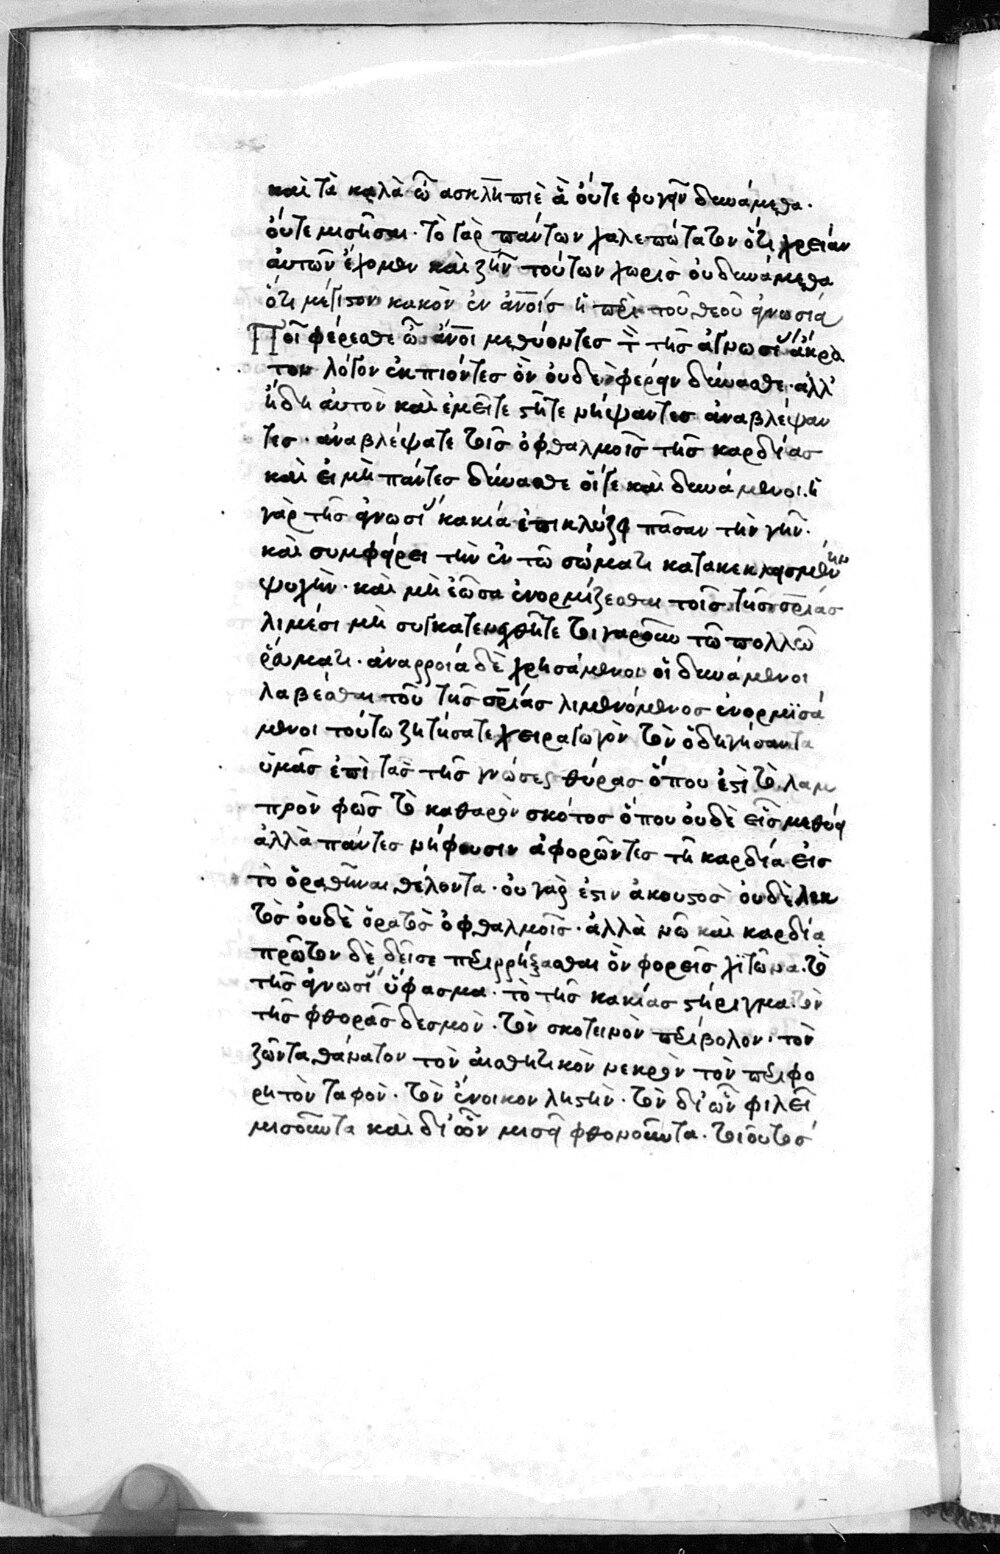 καὶ τὰ καλὰ ὦ ἀσκληπιὲ ἃ οὔτε φυγεῖν δυνάμεθα·
οὔτε μισῆσαι· τὸ γὰρ πάντων χαλεπώτατον ὅτι χρείαν
αὐτῶν ἔχομεν καὶ ζῆν τούτων χωρὶς οὐ δυνάμεθα
ὅτι μέγιστον κακὸν ἐν ἀν̅οις ἡ περὶ τοῦ θεοῦ ἀγνωσία
Ποῖ φέρεσθε ὦ ἀν̅οι μεθύοντες τὸν τῆς ἀγνωσίας ἄκρα
τον λόγον ἐκπιόντες ὃν οὐδὲ φέρειν δύνασθε· ἀλλ'
ἤδη αὐτὸν καὶ ἐμεῖτε στῆτε νήψαντες ἀναβλέψαν
τες· ἀναβλέψατε τοῖς ὀφθαλμοῖς τῆς καρδίας
καὶ εἰ μὴ πάντες δύνασθε οἵ γε καὶ δυνάμενοι· ἡ
γὰρ τῆς ἀγνωσίας κακία ἐπικλύζει πᾶσαν τὴν γῆν·
καὶ συμφθείρει τὴν ἐν τῶ σώματι κατακεκλεισμένην
ψυχὴν· καὶ μὴ ἐῶσα ἐνορμίζεσθαι τοῖς τῆς σ̅ρίας
λιμέσι μὴ συγκατενεχθῆτε τοιγαροῦν τῶ πολλῶ
ῥεύματι· ἀναρροία δὲ χρησάμενοι οἱ δυνάμενοι
λαβέσθαι τοῦ τῆς σ̅ρίας λιμενόμενος ἐνορμισά
μενοι τούτω ζητήσατε χειραγωγὸν τὸν ὁδηγήσαντα
ὑμᾶς ἐπὶ τὰς τῆς γνώσεως θύρας ὅπου ἐστὶ τὸ λαμ
πρὸν φῶς τὸ καθαρὸν σκότος ὅπου οὐδὲ εἷς μεθύει
ἀλλὰ πάντες νήφουσιν ἀφορῶντες τῆ καρδία εἰς
τὸ ὁραθῆναι θέλοντα· οὐ γάρ ἐστιν ἀκουστὸς οὐδὲ λεκ
τὸς οὐδὲ ὁρατὸς ὀφθαλμοῖς· ἀλλὰ νῶ καὶ καρδία
πρῶτον δὲ δεῖ σε περιρρήξασθαι ὃν φορεῖς χιτῶνα· τὸ
τῆς ἀγνωσίας ὕφασμα· τὸ τῆς κακίας στήριγμα· τὸν
τῆς φθορᾶς δεσμὸν· τὸν σκοτεινὸν περίβολον· τὸν
ζῶντα θάνατον τὸν αἰσθητικὸν νεκρὸν τὸν περιφο
ρητὸν τάφον· τὸν ἔνοικον ληστὴν· τὸν δι' ὧν φιλεῖ
μισοῦντα καὶ δι' ὧν μισεῖ φθονοῦντα· τοιοῦτος